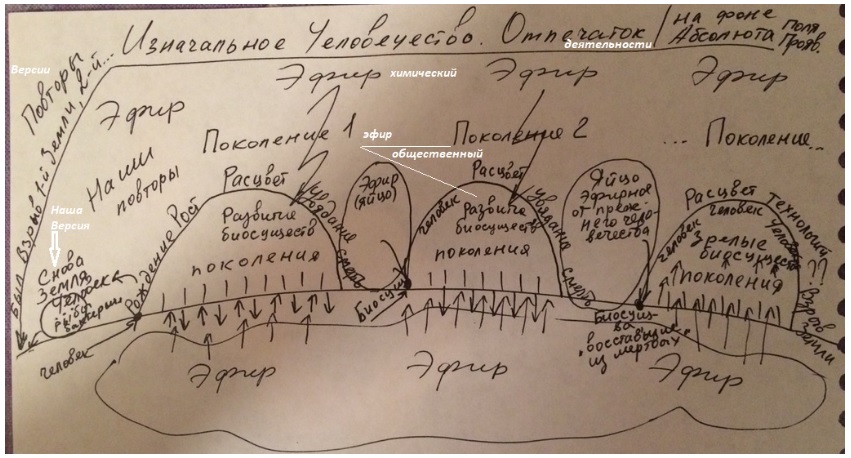 Изначальное Человечество. Отпечаток деятельности
на фоне Абсолюта
Поля Прояв.
Версии
Повторы
Был взрыв 1-й Земли, 2-й...
Эфир
Эфир химический
Эфир
Эфир
Наши повторы
Наша Версия
Снова
Земля
человека
рыба
Поколение 1
эфир
общественный
Поколение 2
... Поколение...
Рождение Рост
Расцвет
Увядание смерть
Развитие
биосуществ
поколения
Эфир
(яйцо)
человек
Расцвет
Увядание смерть
Развитие
биосуществ
поколения
Яйцо
Эфирное
от преж-
него чело-
вечества
человек
Расцвет
человек
Технологий
человек
зрелые
биосущества
поколения
?? Взрыв Земли
человек
Биосущ
Биосущ-
ва
"восставшие
из мертвых"
Эфир
Эфир
Эфир